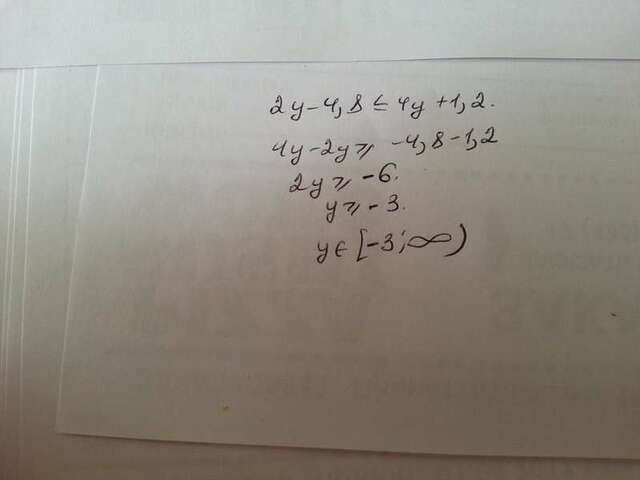 2y-4,8 ≤ 4y+1,2.
4y-2y ⩾ -4,8-1,2
2y ⩾ -6.
y ⩾ -3.
y ∈ [-3; ∞)